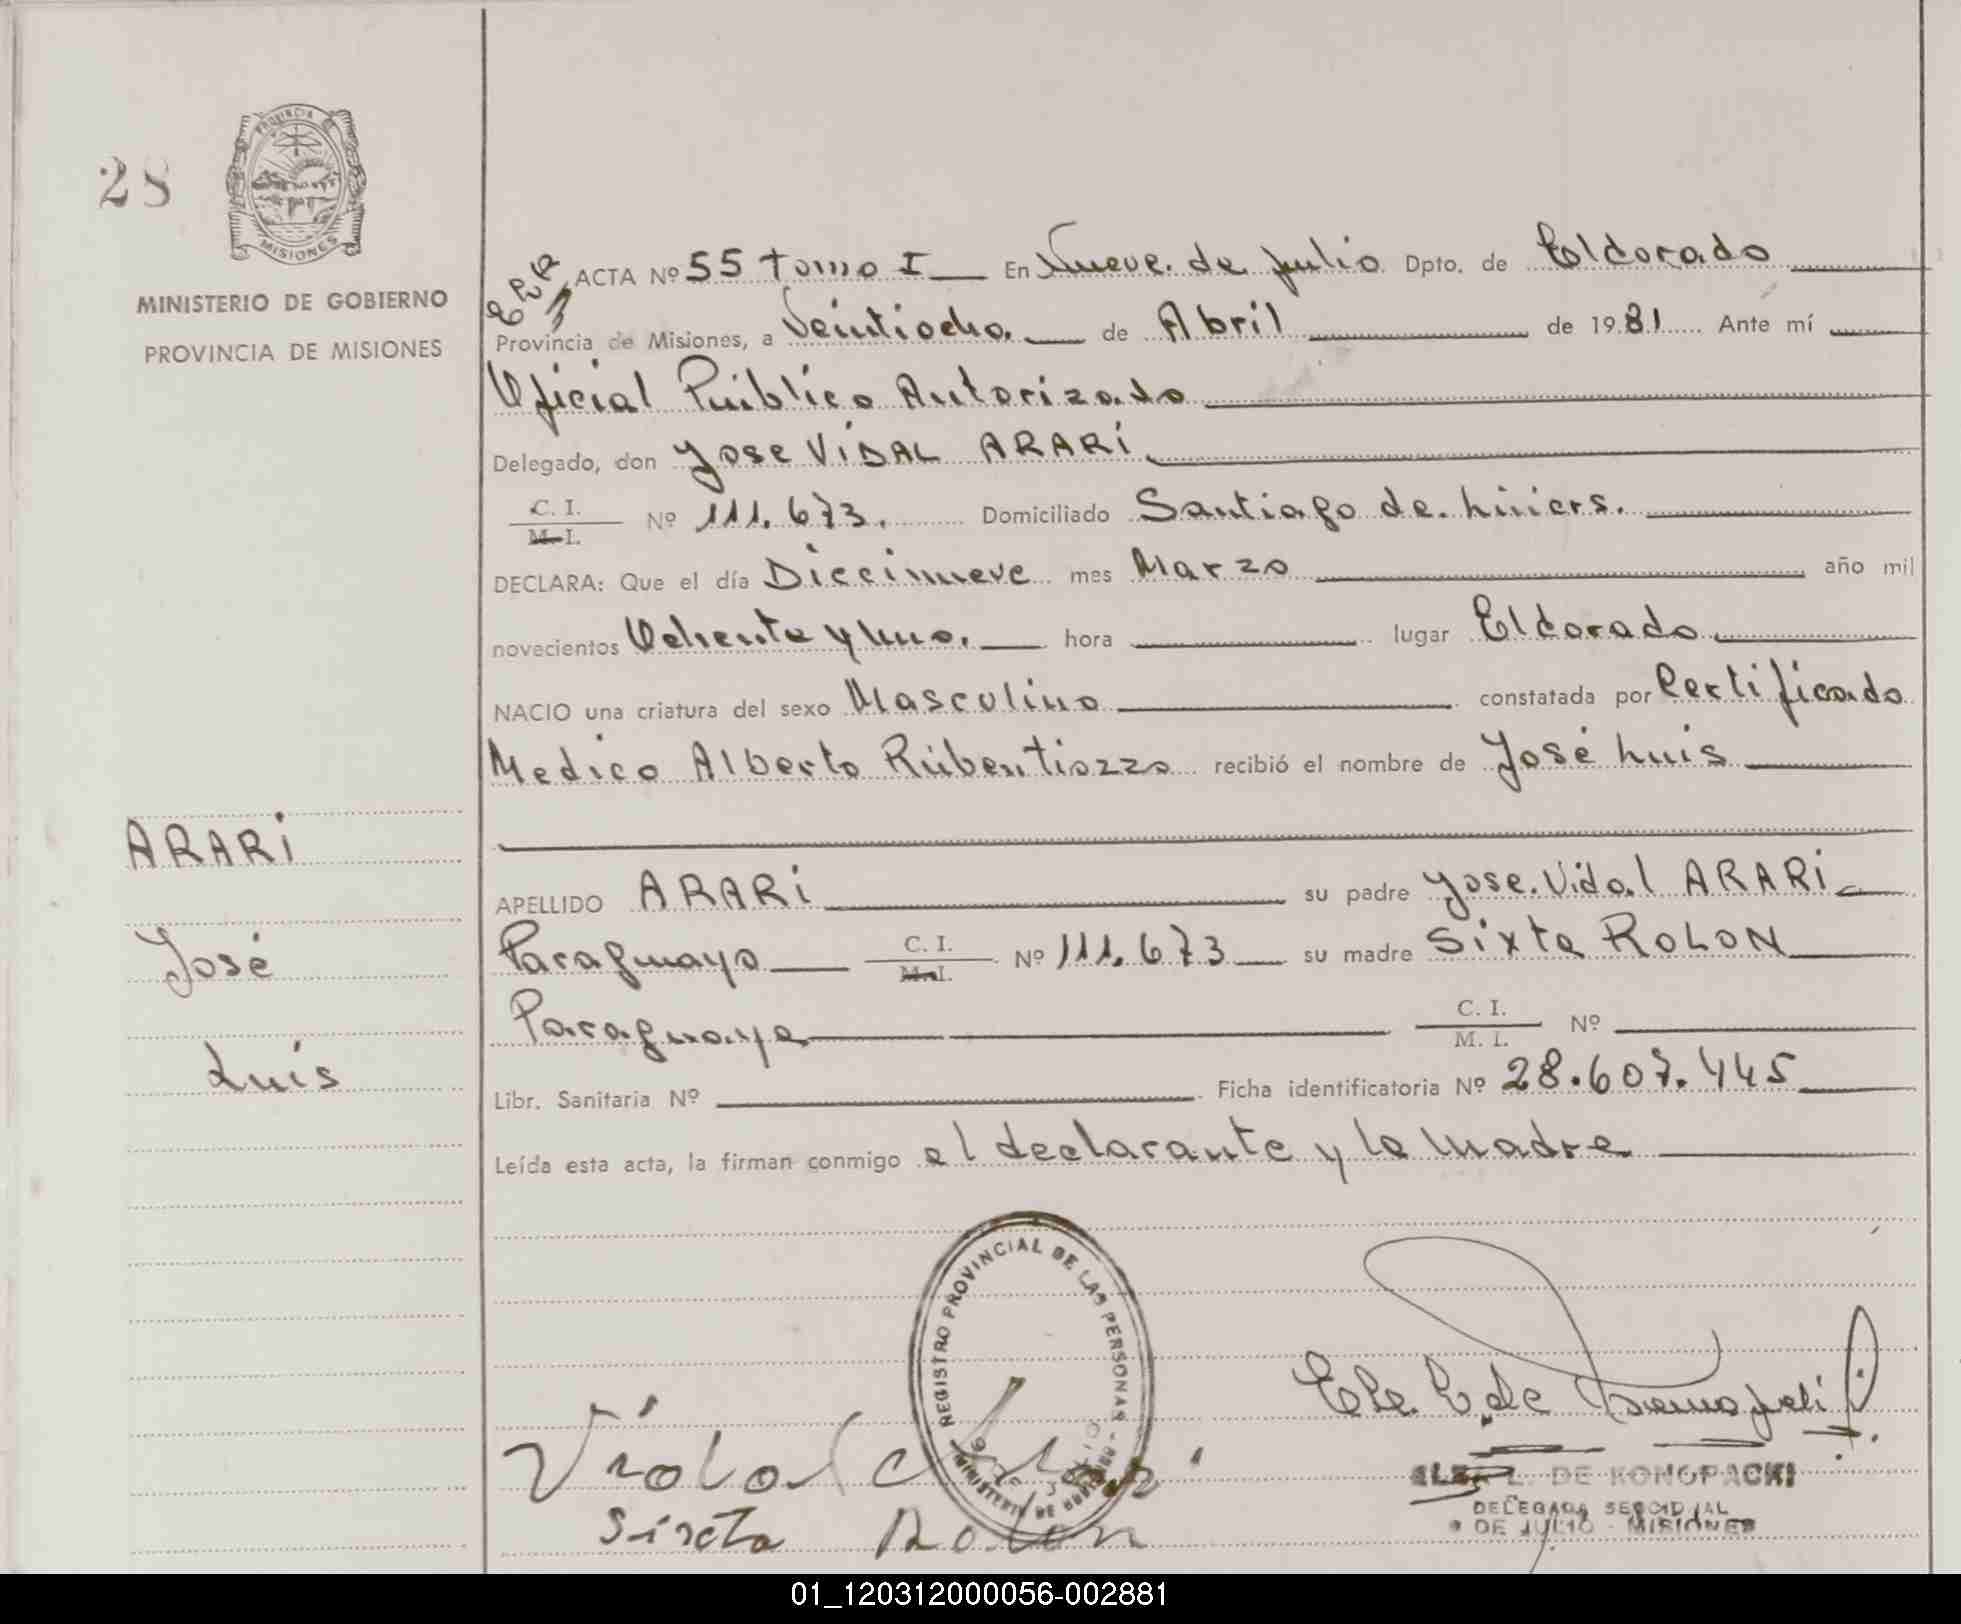 28
PROVINCIA DE
MISIONES
MINISTERIO DE GOBIERNO
PROVINCIA DE MISIONES
ARARI
José
Luis
ACTA Nº 55 tomo I En Nueve de julio Dpto. de Eldorado
Provincia de Misiones, a Veintiocho. de Abril de 1981 Ante mí
Oficial Público Autorizado
Delegado, don Jose VIDAL ARARI
C. I.
M. I. Nº 111.673. Domiciliado Santiago de Liniers.
DECLARA: Que el día Diecinueve mes Marzo año mil
novecientos Ochenta y uno. hora lugar Eldorado
NACIO una criatura del sexo Masculino constatada por Certificado
Medico Alberto Rúben Tiozzo recibió el nombre de José Luis
APELLIDO ARARI su padre Jose Vidal ARARI
Paraguayo C. I.
M. I. Nº 111.673 su madre Sixta ROLON
Paraguaya C. I.
M. I. Nº
Libr. Sanitaria Nº Ficha identificatoria Nº 28.607.445
Leída esta acta, la firman conmigo el declarante y la madre
REGISTRO PROVINCIAL DE LAS PERSONAS - MINISTERIO DE GOBIERNO
9 DE JULIO
Vidal Arari
Sixta Rolon
L. DE KONOPACKI
DELEGADA SECCIONAL
9 DE JULIO - MISIONES
01_120312000056-002881